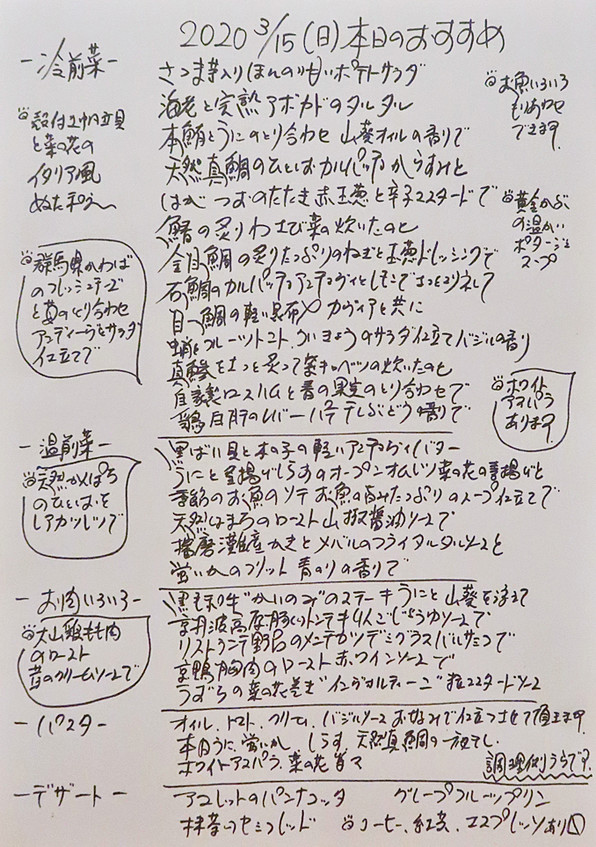 2020 3/15 (日) 本日のおすすめ
ー冷前菜ー
さつま芋入りほんのり甘いポテトサラダ
海老と完熟アボカドのタルタル
本鮪とうにのとり合わせ 山葵オイルの香りで
天然真鯛のひとしおカルパッチョ からすみと
はがつおのたたき 赤玉葱と辛子マスタードで
鰆の炙り わさび菜の炊いたのと
金目鯛の炙り たっぷりのねぎと玉葱ドレッシングで
石鯛のカルパッチョ アンチョヴィとレモンで
目一鯛の軽い昆布〆 カヴィアと共に
フルーツトマト、ういきょうのサラダ仕立て バジルの香り
をさっと炙って 菜キャベツの炊いたのと
自家製ロースハムと春の果実のとり合わせで
白肝のレバーパテ ぶどうの香りで
殻付
と菜の花の
イタリア風
ぬた
群馬県かわば
のフレッシュチーズ
と苺のとり合わせ
アンディーヴとサラダ
仕立てで
お魚いろいろ
もりあわせ
できます。
黄金かぶ
の温かい
ポタージュ
スープ
ホワイト
アスパラ
あります。
ー温前菜ー
黒ばい貝と木の子の軽いアンチョヴィバター
うにと釜揚げしらすのオープンオムレツ 菜の花の素揚げと
季節のお魚のソテー お魚の旨みたっぷりのスープ仕立てで
天然はまちのロースト 山椒醤油ソースで
播磨灘産かきとメバルのフライ タルタルソースと
蛍いかのフリット 青のりの香りで
天然めばち
のひとしお
レアカツレツで
ーお肉いろいろー
黒毛和牛"かいのみ"のステーキ うにと山葵を添えて
京丹波高原豚 にんにくじょうゆソースで
リストランテ野呂のメンチカツ デミグラスバルサミコで
京鴨胸肉のロースト 赤ワインソースで
うずらの菜の花巻き"インヴォルティーニ" 粒マスタードソース
大山鶏もも肉
のロースト
クリームソースで
ーパスター
オイル、トマト、クリーム、バジルソース お好みで仕立てさせて頂きます。
本日 うに、蛍いか しらす、天然真鯛の一夜干し、
ホワイトアスパラ、菜の花
調理例うらです。
ーデザートー
アマレットのパンナコッタ グレープフルーツプリン
抹茶のセミフレッド コーヒー、紅茶、エスプレッソあり